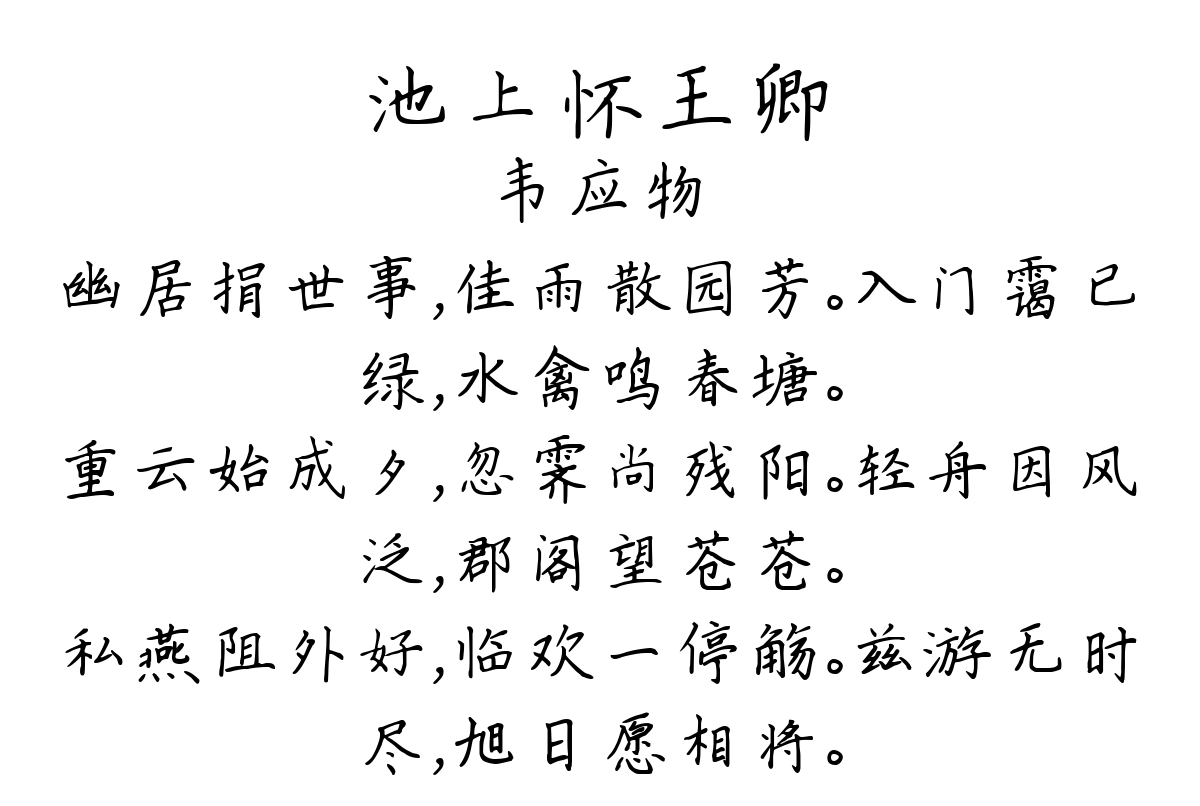 池上怀王卿
韦应物
幽居捐世事,佳雨散园芳。入门霭已
绿,水禽鸣春塘。
重云始成夕,忽霁尚残阳。轻舟因风
泛,郡阁望苍苍。
私燕阻外好,临欢一停觞。兹游无时
尽,旭日愿相将。